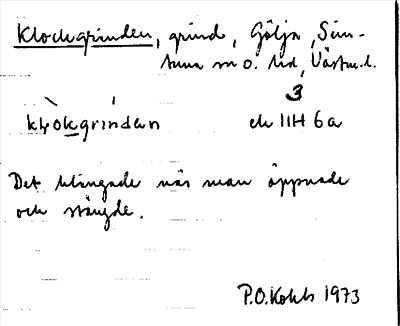 Klockgrinden, grind, Gölja, Sim-
tuna sn o. hd, Västm.l.
3
klokgrindan ek IIH 6a
Det klingade när man öppnade
och stängde.
P.O. Kohls 1973